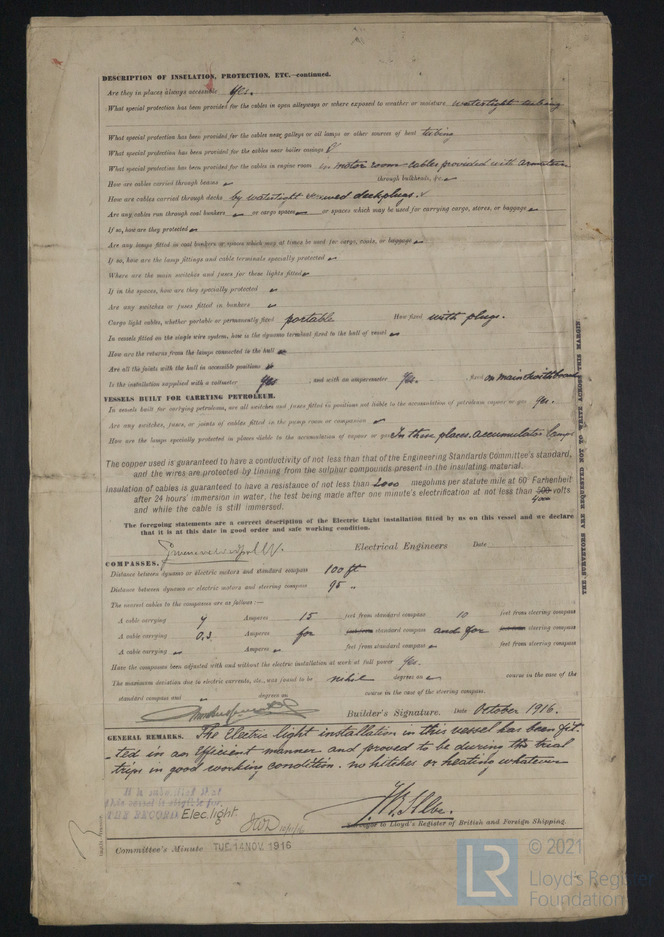 DESCRIPTION OF INSULATION, PROTECTION, ETC.—continued.
Are they in places always accessible Yes.
What special protection has been provided for the cables in open alleyways or where exposed to weather or moisture watertight tubing
What special protection has been provided for the cables near galleys or oil lamps or other sources of heat tubing
What special protection has been provided for the cables near boiler casings
What special protection has been provided for the cables in engine room motor room cables provided with armature
How are cables carried through beams through bulkheads, &c.
How are cables carried through decks by watertight screwed deckplugs.
Are any cables run through coal bunkers or cargo spaces or spaces which may be used for carrying cargo, stores, or baggage
If so, how are they protected
Are any lamps fitted in coal bunkers or spaces which may at times be used for cargo, coals, or baggage
If so, how are the lamp fittings and cable terminals specially protected
Where are the main switches and fuses for these lights fitted
If in the spaces, how are they specially protected
Are any switches or fuses fitted in bunkers
Cargo light cables, whether portable or permanently fixed portable How fixed with plugs.
In vessels fitted on the single wire system, how is the dynamo terminal fixed to the hull of vessel
How are the returns from the lamps connected to the hull
Are all the joints with the hull in accessible positions
Is the installation supplied with a voltmeter Yes ; and with an amperemeter Yes. fixed on main switchboard
VESSELS BUILT FOR CARRYING PETROLEUM.
In vessels built for carrying petroleum, are all switches and fuses fitted in positions not liable to the accumulation of petroleum vapour or gas Yes.
Are any switches, fuses, or joints of cables fitted in the pump room or companion
How are the lamps specially protected in places liable to the accumulation of vapour or gas In these places accumulator lamps
The copper used is guaranteed to have a conductivity of not less than that of the Engineering Standards Committee's standard,
and the wires are protected by tinning from the sulphur compounds present in the insulating material.
Insulation of cables is guaranteed to have a resistance of not less than 2000 megohms per statute mile at 60° Farhenheit
after 24 hours' immersion in water, the test being made after one minute's electrification at not less than 500 volts
400
and while the cable is still immersed.
The foregoing statements are a correct description of the Electric Light installation fitted by us on this vessel and we declare
that it is at this date in good order and safe working condition.
Electrical Engineers Date
COMPASSES.
Distance between dynamo or electric motors and standard compass 100 ft
Distance between dynamo or electric motors and steering compass 95 „
The nearest cables to the compasses are as follows:—
A cable carrying 4 Amperes 15 feet from standard compass 10 feet from steering compass
A cable carrying 0,3 Amperes for standard compass and for steering compass
A cable carrying Amperes feet from standard compass feet from steering compass
Have the compasses been adjusted with and without the electric installation at work at full power Yes.
The maximum deviation due to electric currents, etc., was found to be nihil degrees on course in the case of the
standard compass and degrees on course in the case of the steering compass.
Builder's Signature. Date October 1916.
GENERAL REMARKS. The Electric light installation in this vessel has been fit-
-ted in an Efficient manner and proved to be during the trial
trips in good working condition. no hitches or heating whatever
It is submitted that
this vessel is eligible for
THE RECORD Elec. light.
Surveyor to Lloyd's Register of British and Foreign Shipping.
Committee's Minute TUE. 14 NOV. 1916
THE SURVEYORS ARE REQUESTED NOT TO WRITE ACROSS THIS MARGIN
LR
© 2021
Lloyd's Register
Foundation